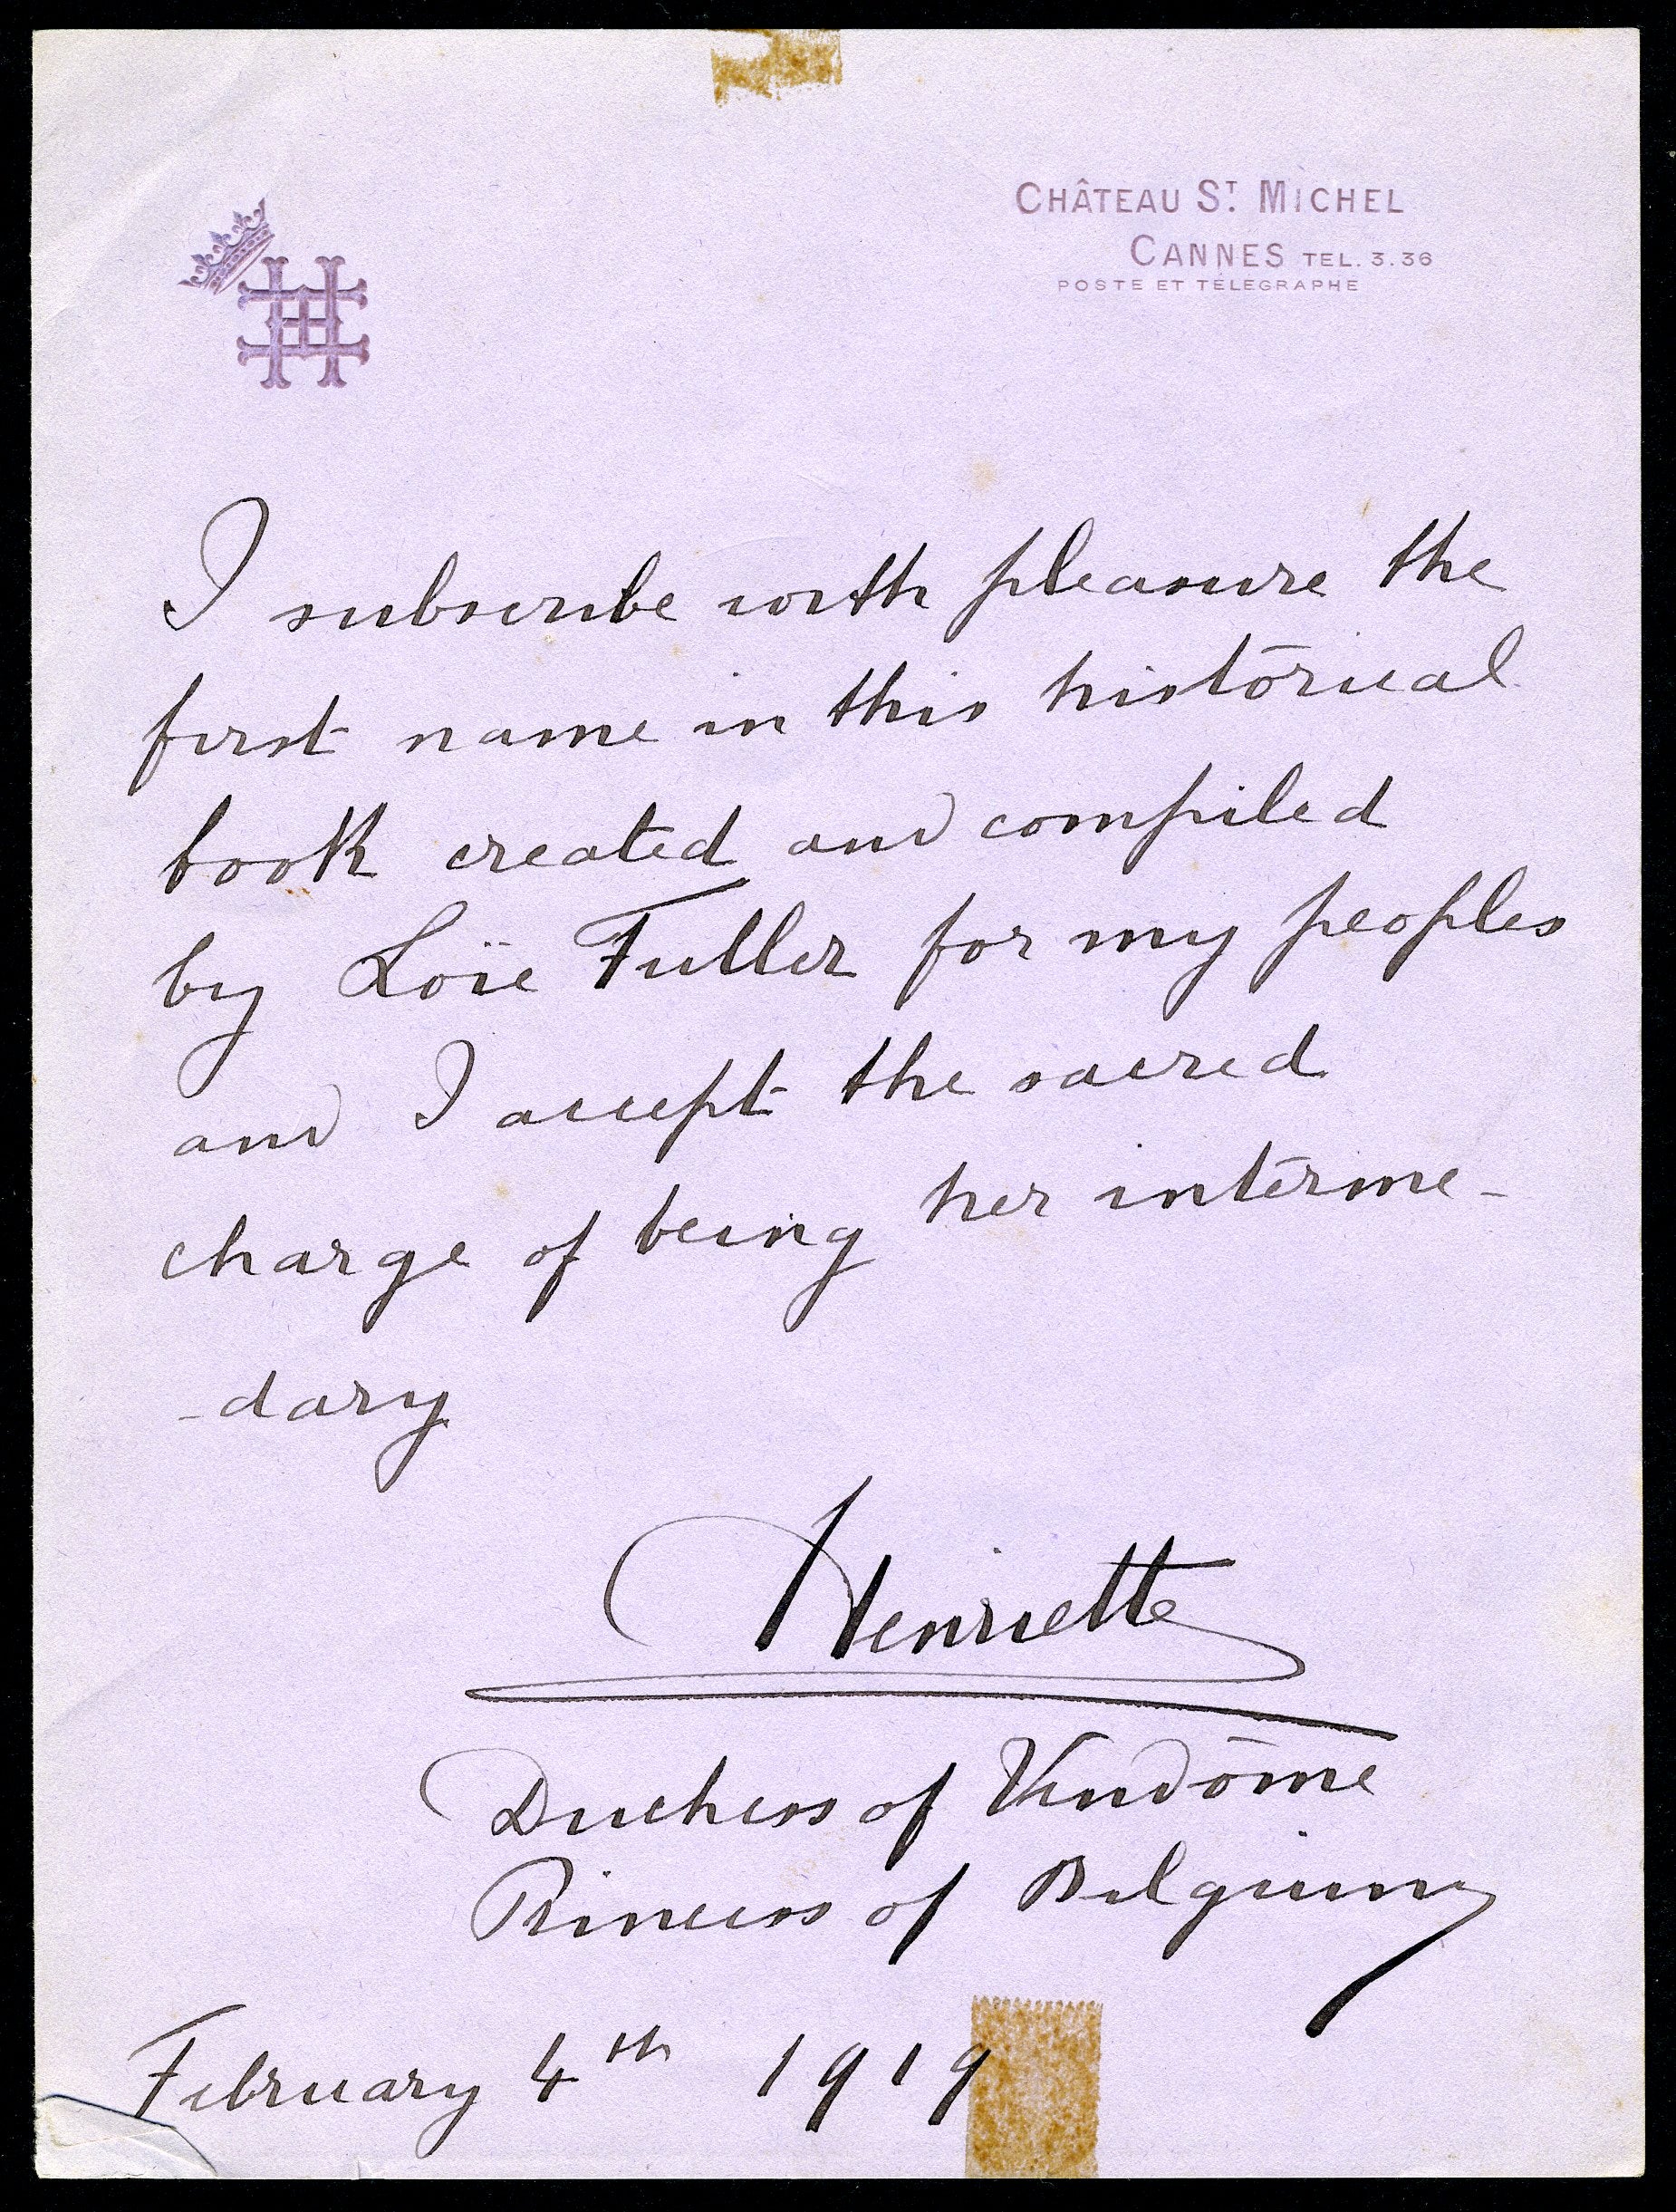 CHÂTEAU ST. MICHEL
CANNES TEL. 3.36
POSTE ET TÉLÉGRAPHE
I subscribe with pleasure the
first name in this historical
book created and compiled
by Loïe Fuller for my peoples
and I accept the sacred
charge of being her interme-
-dary
Henriette
Duchess of Vendôme
Princess of Belgium
February 4th 1919